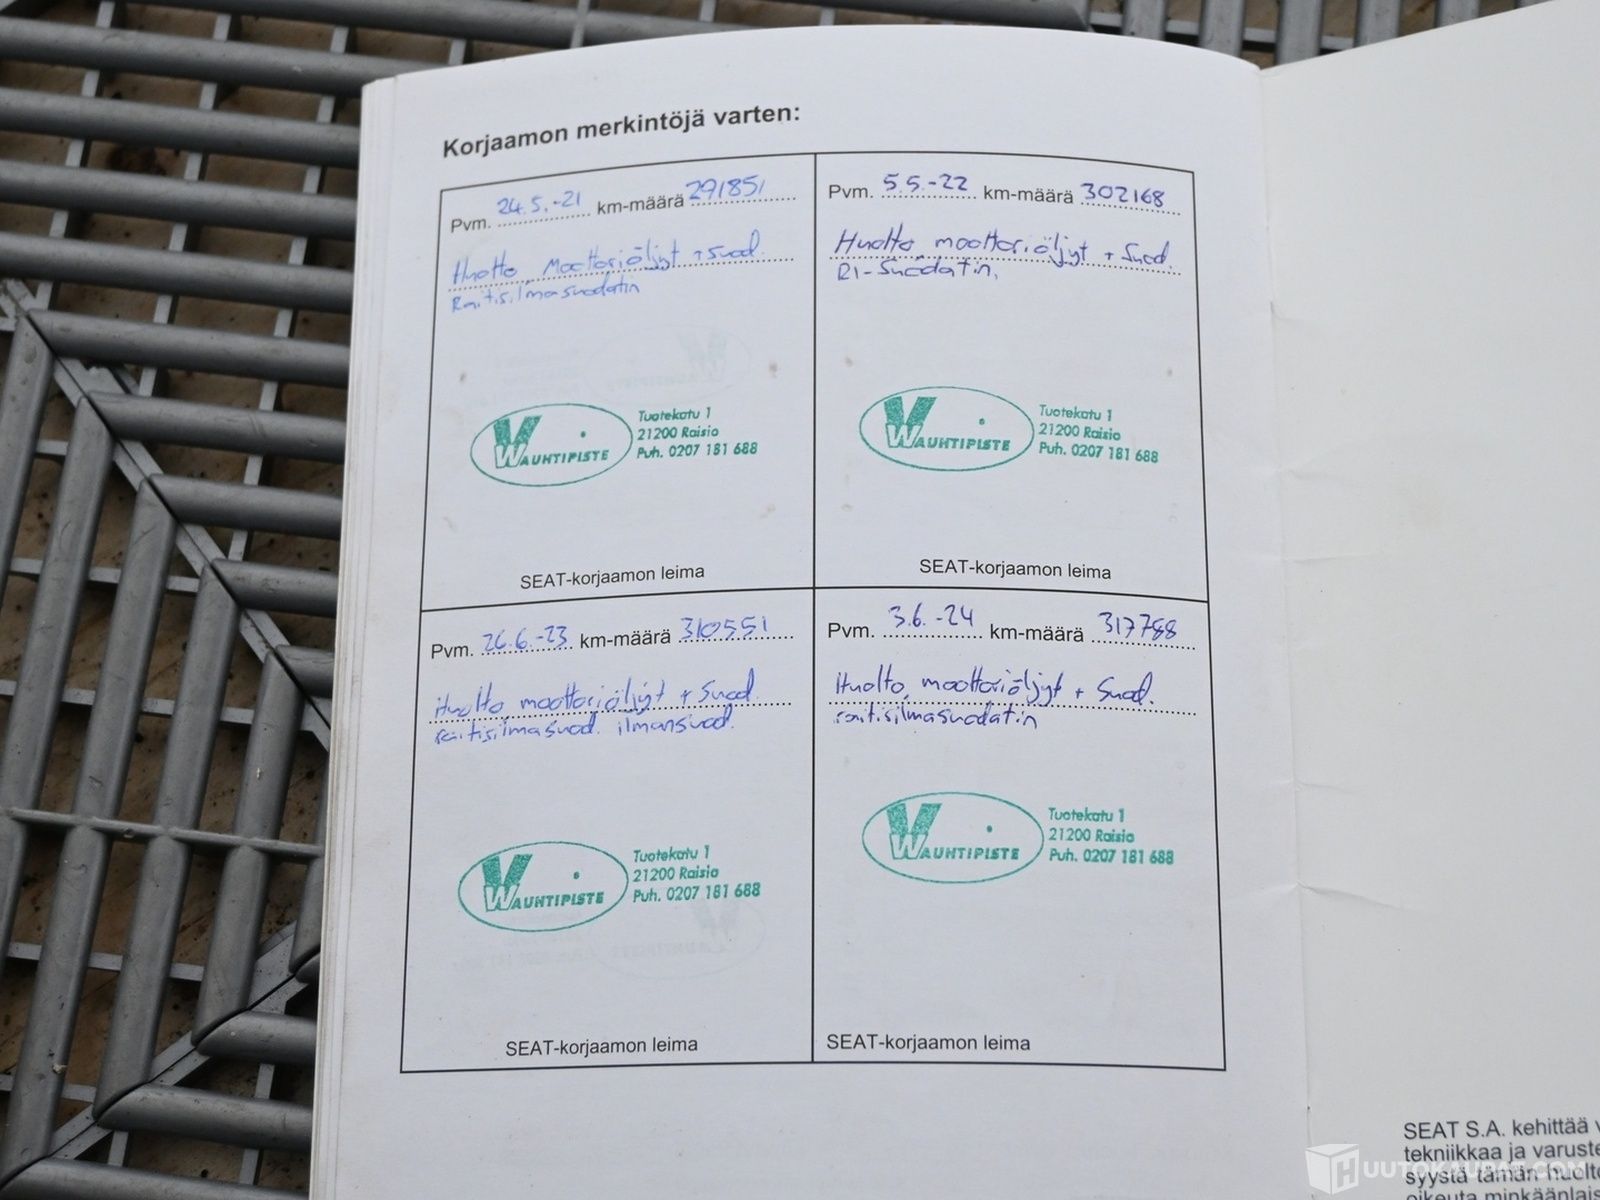 Korjaamon merkintöjä varten:
Pvm. 24.5.-21 km-määrä 291851
Huolto, Moottoriöljyt + Suod.
Raitisilmasuodatin
VWAUHTIPISTE
Tuotekatu 1
21200 Raisio
Puh. 0207 181 688
SEAT-korjaamon leima
Pvm. 5.5.-22 km-määrä 302168
Huolto, moottoriöljyt + Suod.
RI-Suodatin,
VWAUHTIPISTE
Tuotekatu 1
21200 Raisio
Puh. 0207 181 688
SEAT-korjaamon leima
Pvm. 26.6.-23 km-määrä 310551
Huolto, moottoriöljyt + Suod.
raitisilmasuod. ilmansuod.
VWAUHTIPISTE
Tuotekatu 1
21200 Raisio
Puh. 0207 181 688
SEAT-korjaamon leima
Pvm. 3.6.-24 km-määrä 317788
Huolto, moottoriöljyt + Suod.
raitisilmasuodatin
VWAUHTIPISTE
Tuotekatu 1
21200 Raisio
Puh. 0207 181 688
SEAT-korjaamon leima
SEAT S.A. kehittää
tekniikkaa ja varuste
syystä tämän huolto
oikeuta minkäänlais
HUUTOKAUPAT.COM